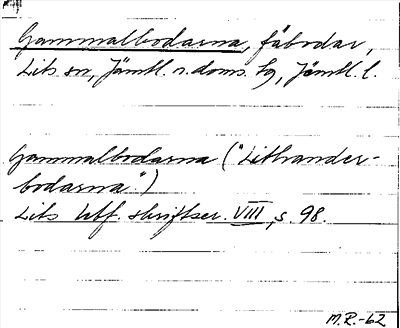 Gammalbodarna, fäbodar,
Lits sn, Jämtl. n. doms. tg, Jämtl. l.
Gammalbodarna ("Lithander-
bodarna".)
Lits hbf. skriftser. VIII, s. 98.
M.R.-62